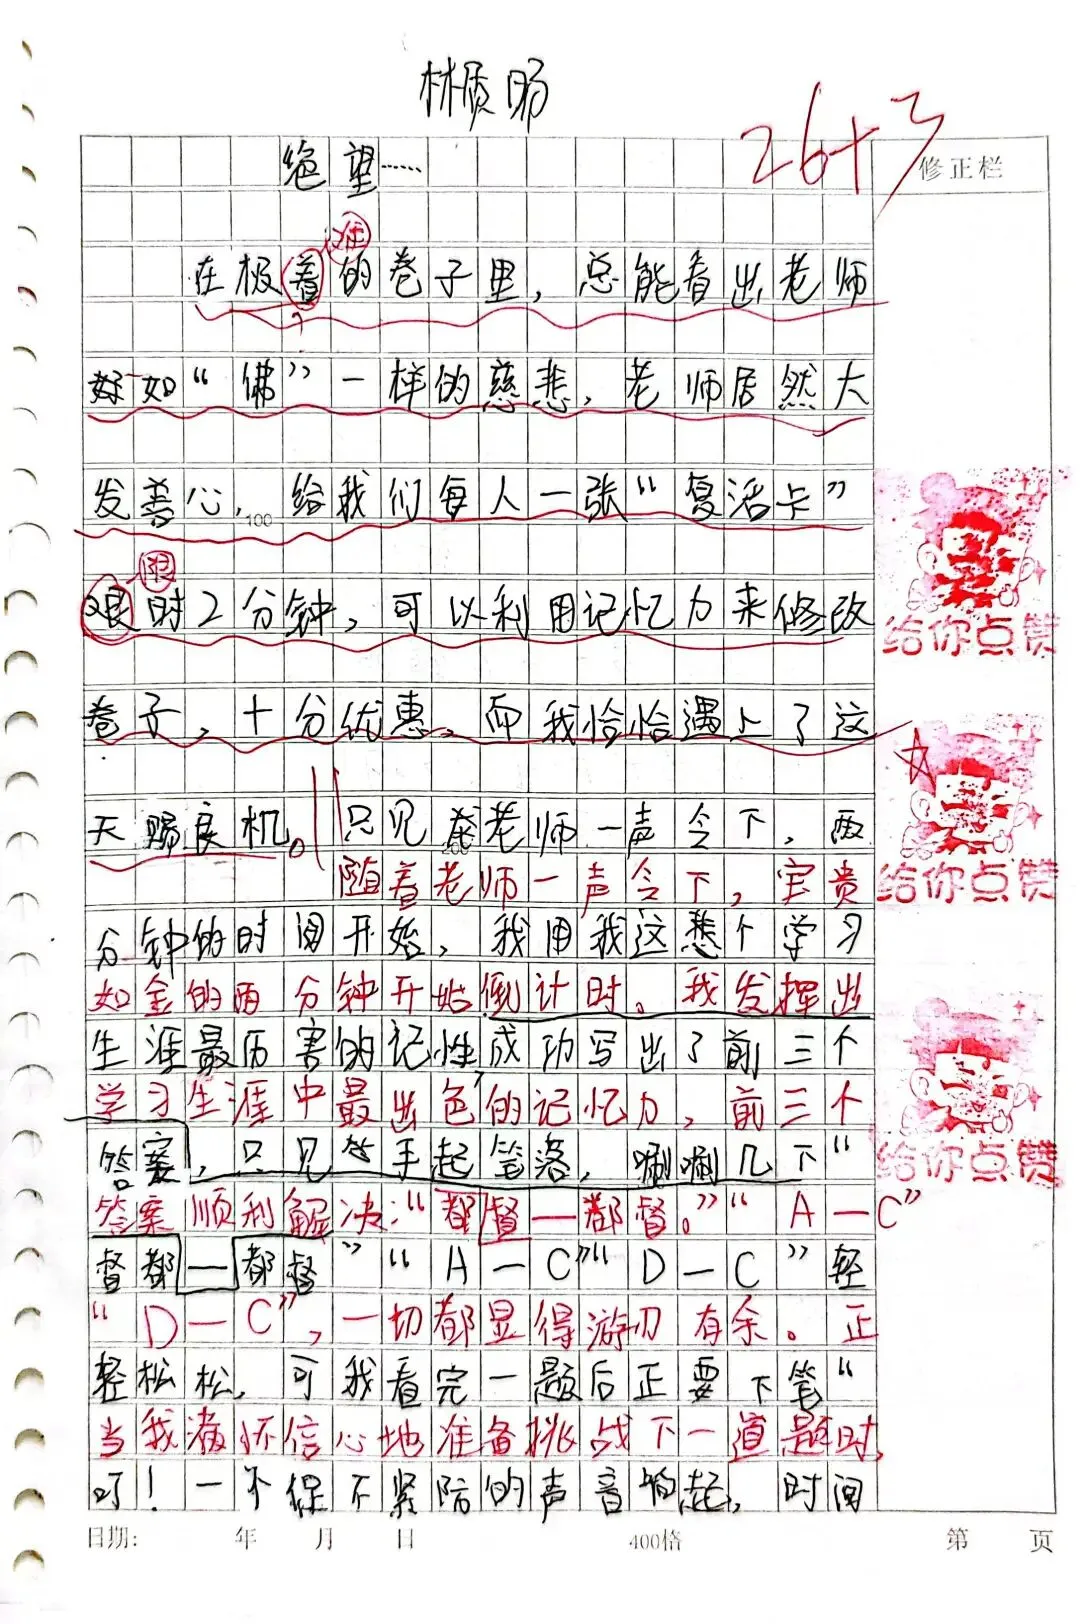 林质旸
26+3
修正栏
绝望……
难
在极着的卷子里，总能看出老师
好如“佛”一样的慈悲，老师居然大
发善心，给我们每人一张“复活卡”
100
限
艰时2分钟，可以利用记忆力来修改
给你点赞
卷子，十分优惠，而我恰恰遇上了这
天赐良机。只见老师一声令下，两
随着老师一声令下，宝贵
给你点赞
分钟的时间开始，我用我这想个学习
如金的两分钟开始倒计时。我发挥出
生涯最历害的记性成功写出了前三个
学习生涯中最出色的记忆力，前三个
答案，只见笔手起笔落，唰唰几下“
给你点赞
答案顺利解决：“都督—都督。”“A—C”
督都—都督”“A—C”“D—C”轻
“D—C”，一切都显得游刃有余。正
轻松松，可我看完一题后正要下笔“
当我满怀信心地准备挑战下一道题时，
叮！一不保不紧防的声音响起，时间
日期： 年 月 日 400格 第 页